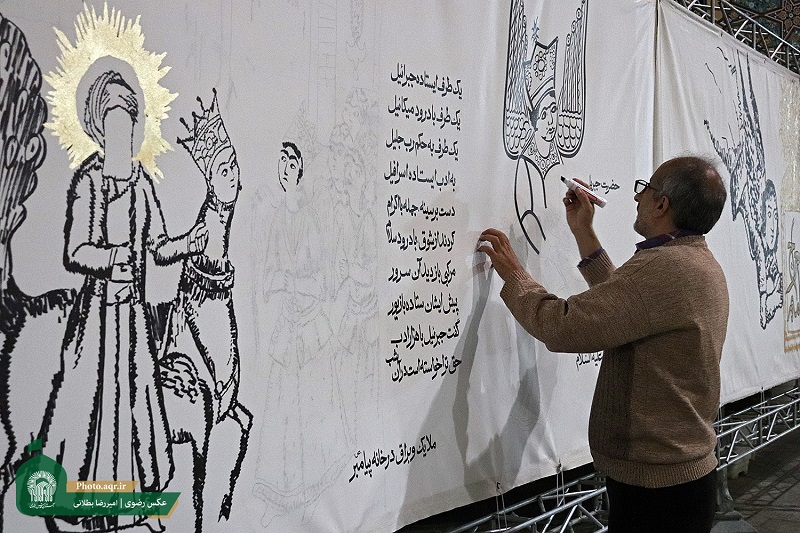 یک طرف ایستاده جبرائیل
یک طرف با درود میکائیل
یک طرف به حکم رب جلیل
به ادب ایستاده اسرافیل
دست بر سینه جمله با اکرام
کردند از شوق با درود سلام
مرکبی بازدید آن سرور
پیش ایشان ستاده بازیور
گفت جبرئیل با هزار ادب
حق تو را خواسته است در آن شب
ملایک و براق در خانه پیامبر
حضرت
علیه السلام
Photo.aqr.ir
عکس رضوی | امیررضا بطلانی